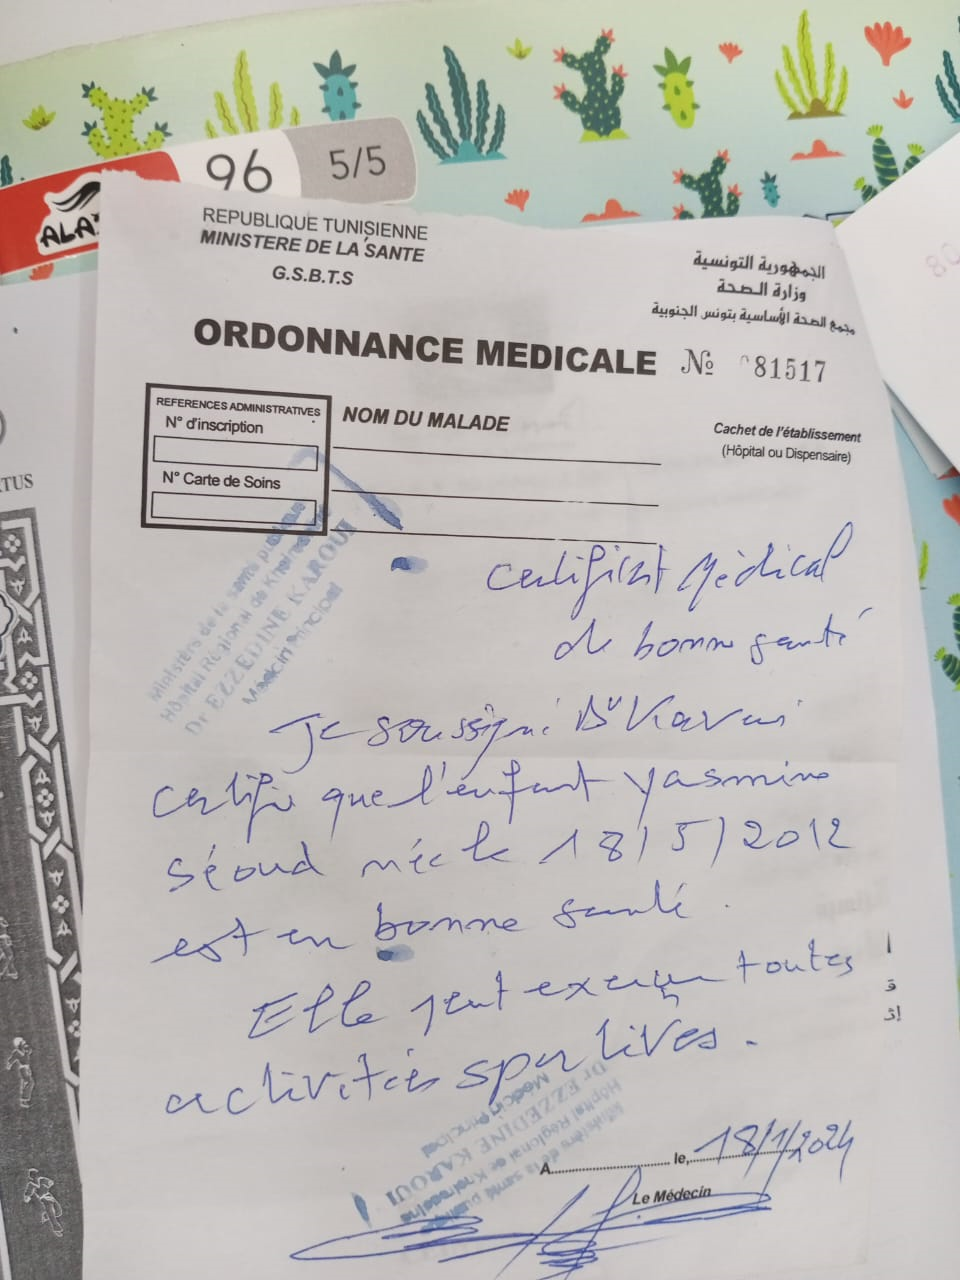 96
5/5
REPUBLIQUE TUNISIENNE
MINISTERE DE LA SANTE
G.S.B.T.S
الجمهورية التونسية
وزارة الصحة
مجمع الصحة الأساسية بتونس الجنوبية
ORDONNANCE MEDICALE № 081517
REFERENCES ADMINISTRATIVES
N° d'inscription
N° Carte de Soins
NOM DU MALADE
Cachet de l'établissement
(Hôpital ou Dispensaire)
Ministère de la santé publique
Hôpital Régional de Kheireddine
Dr EZZEDINE KAROUI
Medcin Principal
Certificat Médical
de bonne santé
Je soussigné Dr Karoui
certifie que l'enfant Yasmine
Séoud née le 18/5/2012
est en bonne santé.
Elle peut exercer toutes
activités sportives.
A le, 18/1/2024
Le Médecin
Dr EZZEDINE KAROUI
Medcin Principal
Hôpital Régional de Kheireddine
Ministère de la santé publique